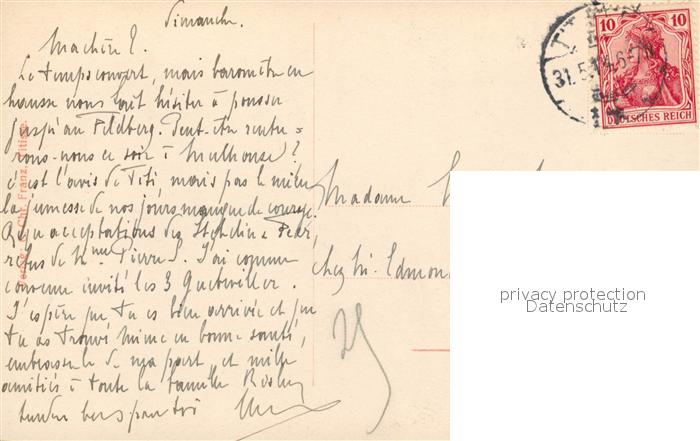 Dimanche.
Ma chère
Le temps couvert, mais baromètre en
hausse nous fait hésiter à pousser
jusqu'au Feldberg. Peut-être rentre=
rons-nous ce soir à Mulhouse?
c'est l'avis de Titi, mais pas le mien
la jeunesse de nos jours manque de courage.
Reçu acceptations des Stehelin &
refus de Mme Pierre S. J'ai comme
convenu invité les 3 Guebwiller.
J'espère que tu es bien arrivée et que
tu as trouvé Mimi en bonne santé,
embrasse le de ma part, et mille
amitiés à toute la famille
tendres baisers pour toi
Madame
chez Mr. Edmon
10 10
DEUTSCHES REICH
31.5.
Franz, Titisee.
25
privacy protection
Datenschutz